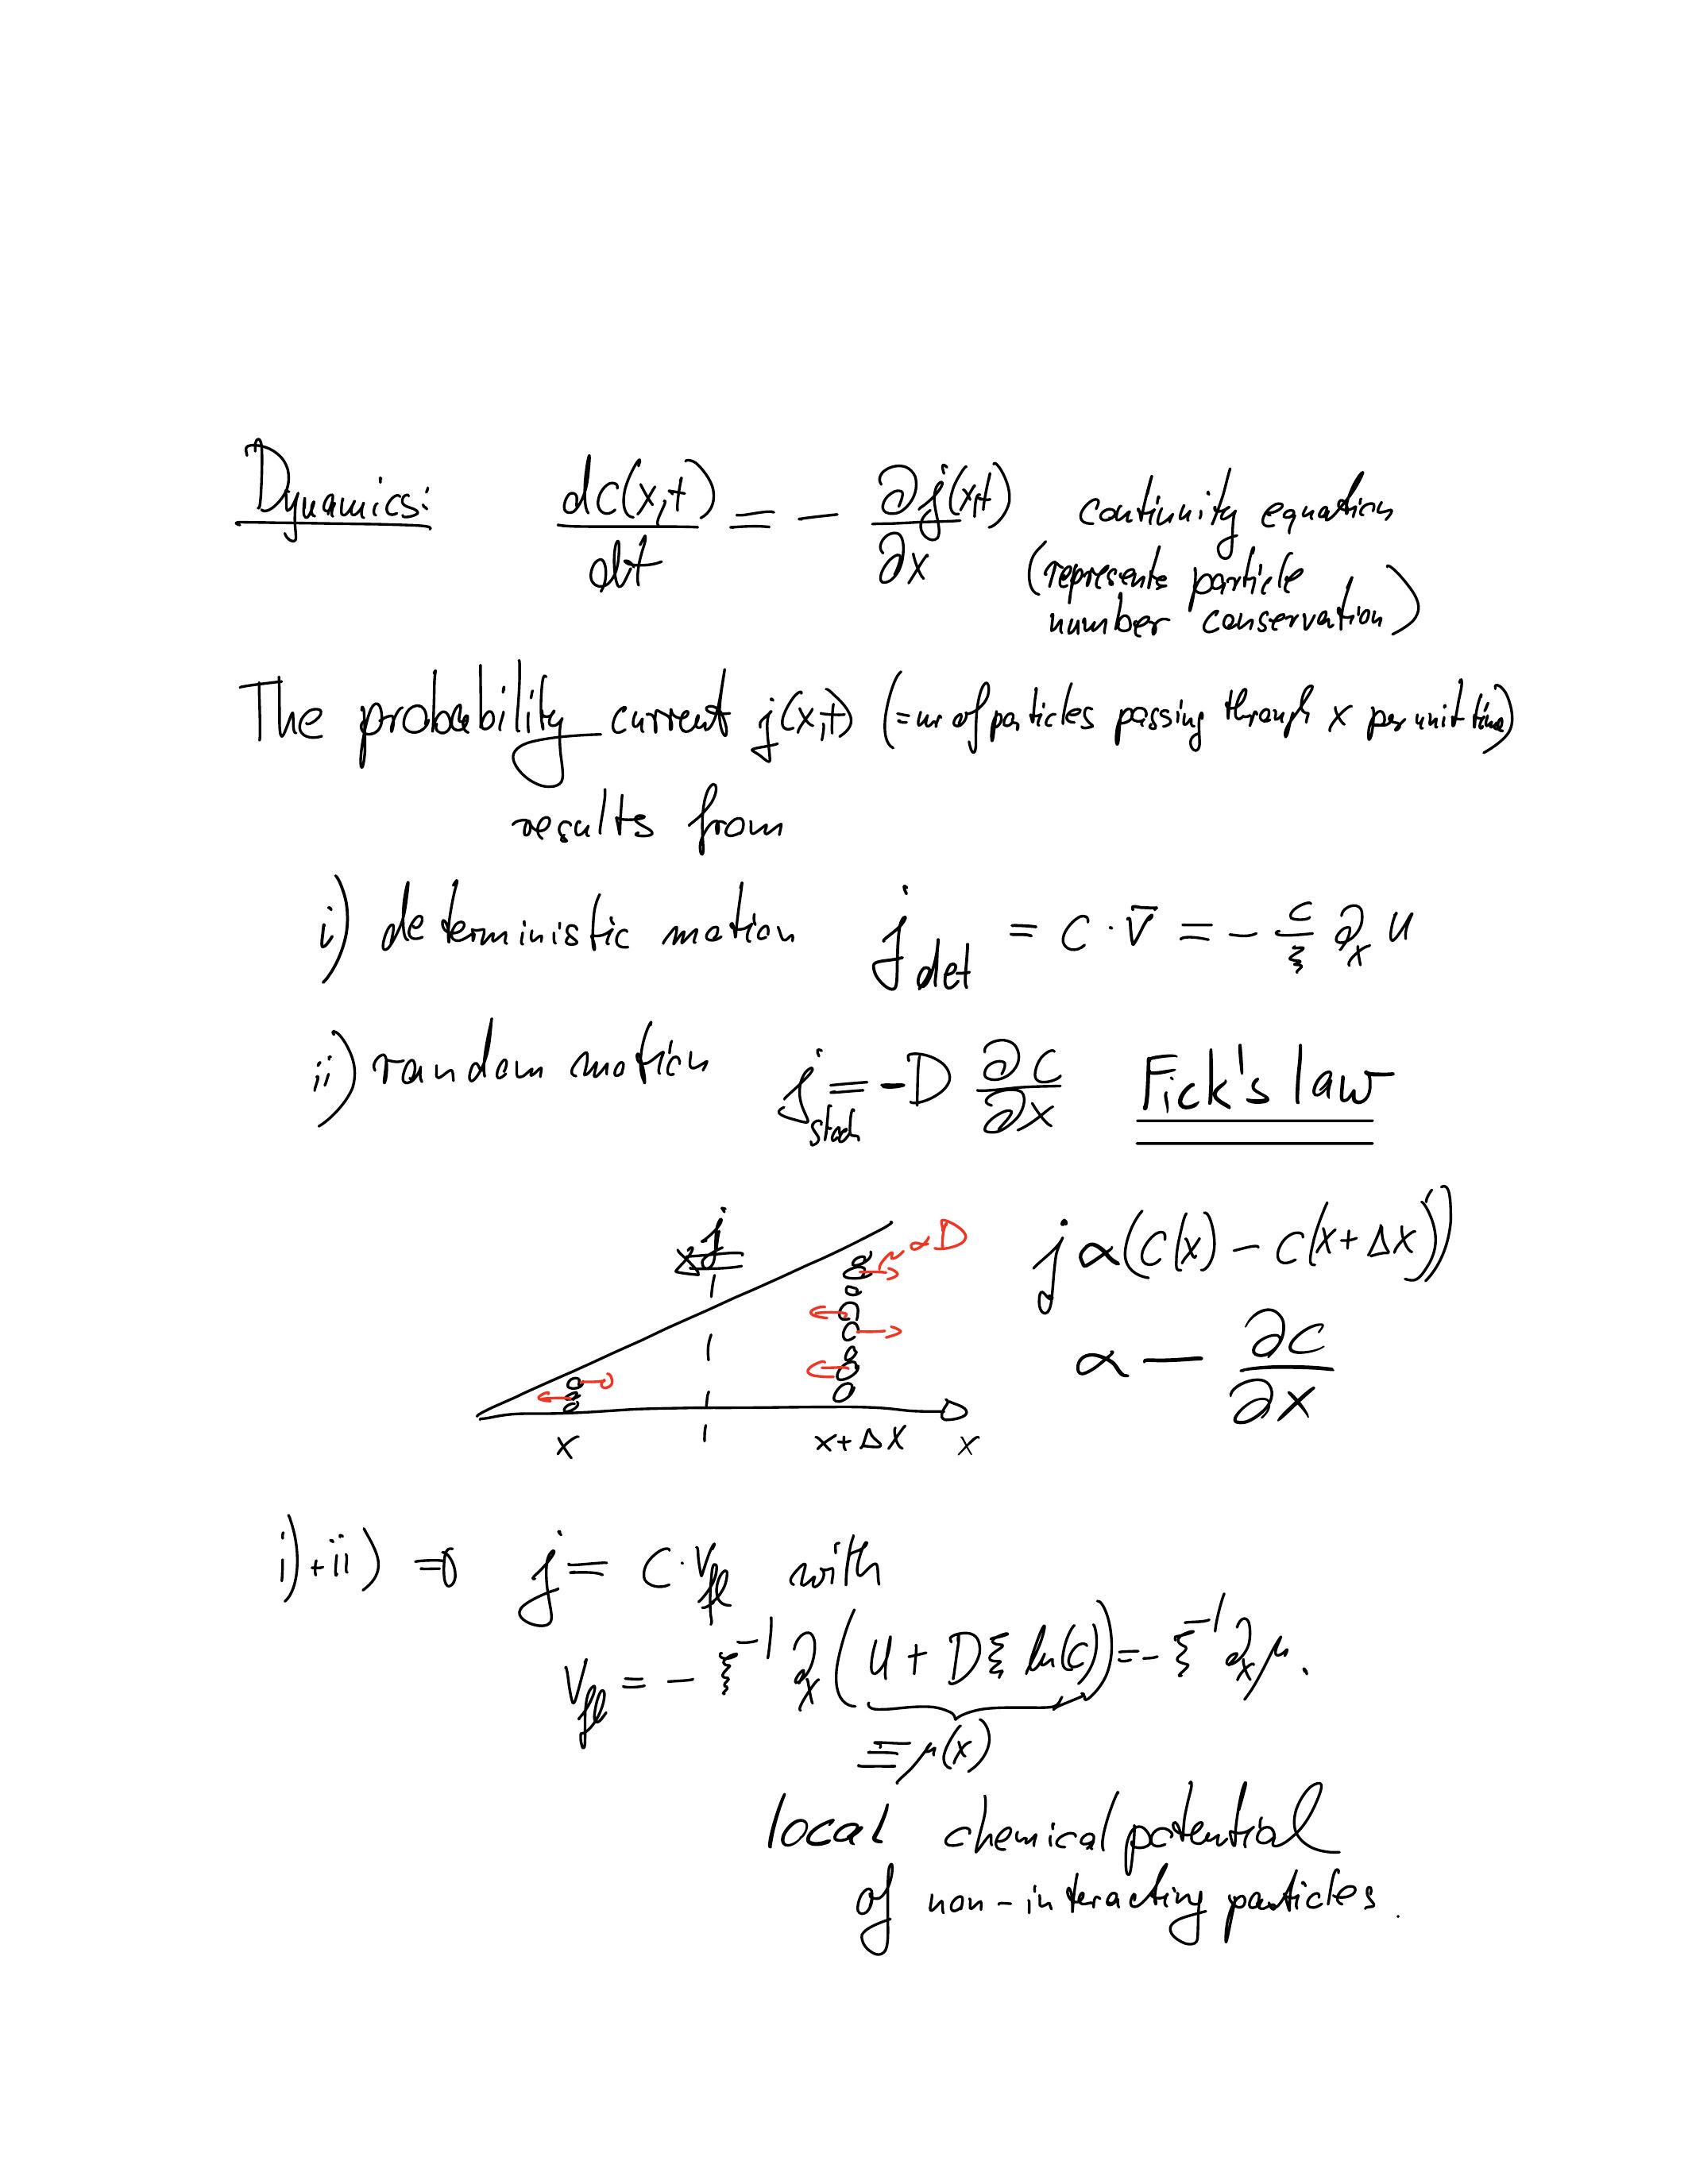 Dynamics: dc(x,t)/dt = - ∂j(x,t)/∂x continuity equation
(represents particle
number conservation)
The probability current j(x,t) (= nr of particles passing through x per unit time)
results from
i) deterministic motion j_det = c · v̄ = - c/ξ ∂_x U
ii) random motion j_stoch = -D ∂c/∂x Fick's law
j
∝D
j ∝ (c(x) - c(x+Δx))
∝ - ∂c/∂x
x x+Δx x
i)+ii) ⇒ j = c·v_fl with
v_fl = - ξ^-1 ∂_x (U + Dξ ln(c)) = - ξ^-1 ∂_x μ.
≡ μ(x)
local chemical potential
of non-interacting particles.